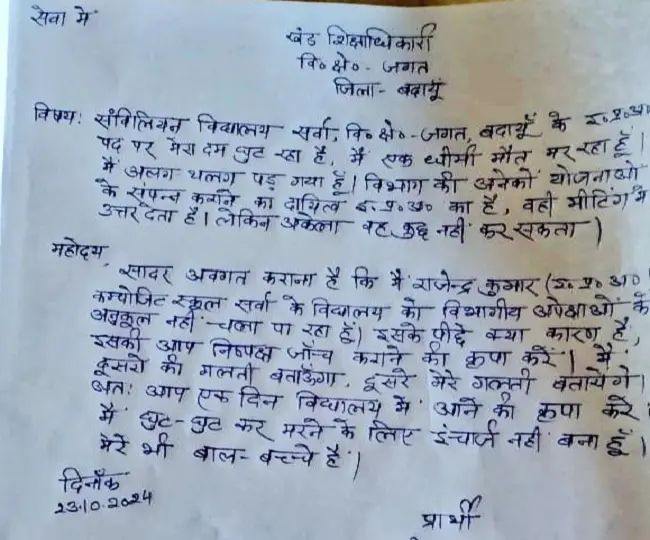 सेवा में
खंड शिक्षाधिकारी
वि०क्षे०- जगत
जिला- बदायूँ
विषय: संविलियन विद्यालय सर्वा, वि०क्षे०-जगत, बदायूँ के इ.प्र.अ०
पद पर मेरा दम घुट रहा है, मैं एक धीमी मौत मर रहा हूँ।
मैं अलग थलग पड़ गया हूँ। विभाग की अनेकों योजनाओं
के संपन्न कराने का दायित्व इ०प्र०अ० का है, वही मीटिंग में
उत्तर देता है। लेकिन अकेला वह कुछ नहीं कर सकता)
महोदय,
सादर अवगत कराना है कि मैं राजेन्द्र कुमार (इ. प्र० अ०)
कम्पोजिट स्कूल सर्वा के विद्यालय को विभागीय अपेक्षाओं के
अनुकूल नहीं चला पा रहा हूँ। इसके पीछे क्या कारण है,
इसकी आप निष्पक्ष जाँच कराने की कृपा करें। मैं
दूसरों की गलती बताऊंगा, दूसरे मेरे गलती बतायेंगे।
अतः आप एक दिन विद्यालय में आने की कृपा करें।
मैं घुट-घुट कर मरने के लिए इंचार्ज नहीं बना हूँ।
मेरे भी बाल-बच्चे हैं।
दिनाँक
23.10.2024
प्रार्थी